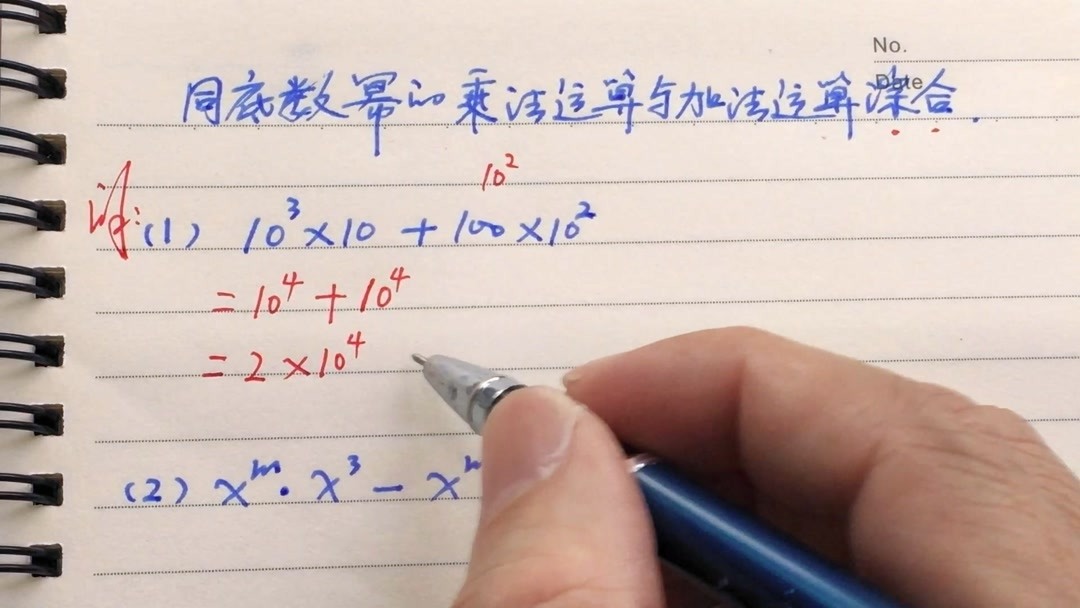 No.
Date
同底数幂的乘法运算与加法运算综合.
10²
(1) 10³×10 + 100×10²
= 10⁴ + 10⁴
= 2×10⁴
(2) xᵐ·x³ - x